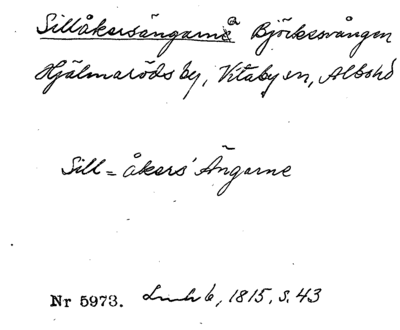 Sillåkersängarna Björkesvången
Hjälmaröds by, Vitaby sn, Albo hd
Sill = åkers' Ängarne
Nr 5973. 6, 1815, s. 43